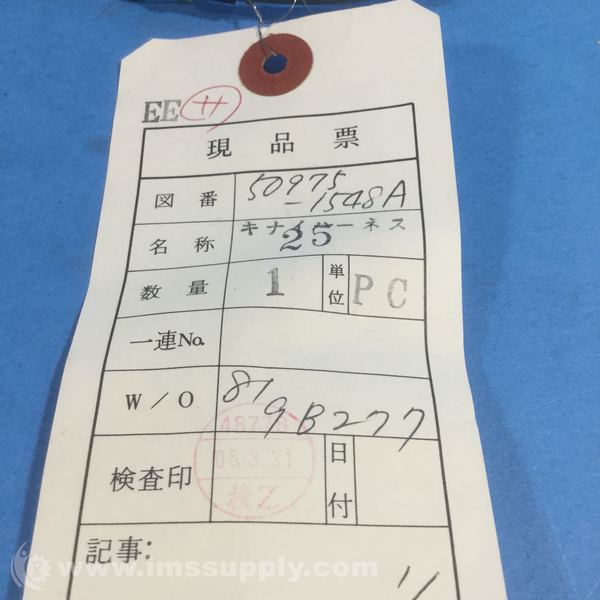 EE サ
現品票
図番 50975
-1548A
名称 キナイハーネス
25
数量 1 単位 PC
一連No.
W/O 819B277
検査印 08.3.31 検 日付
記事:
www.imssupply.com